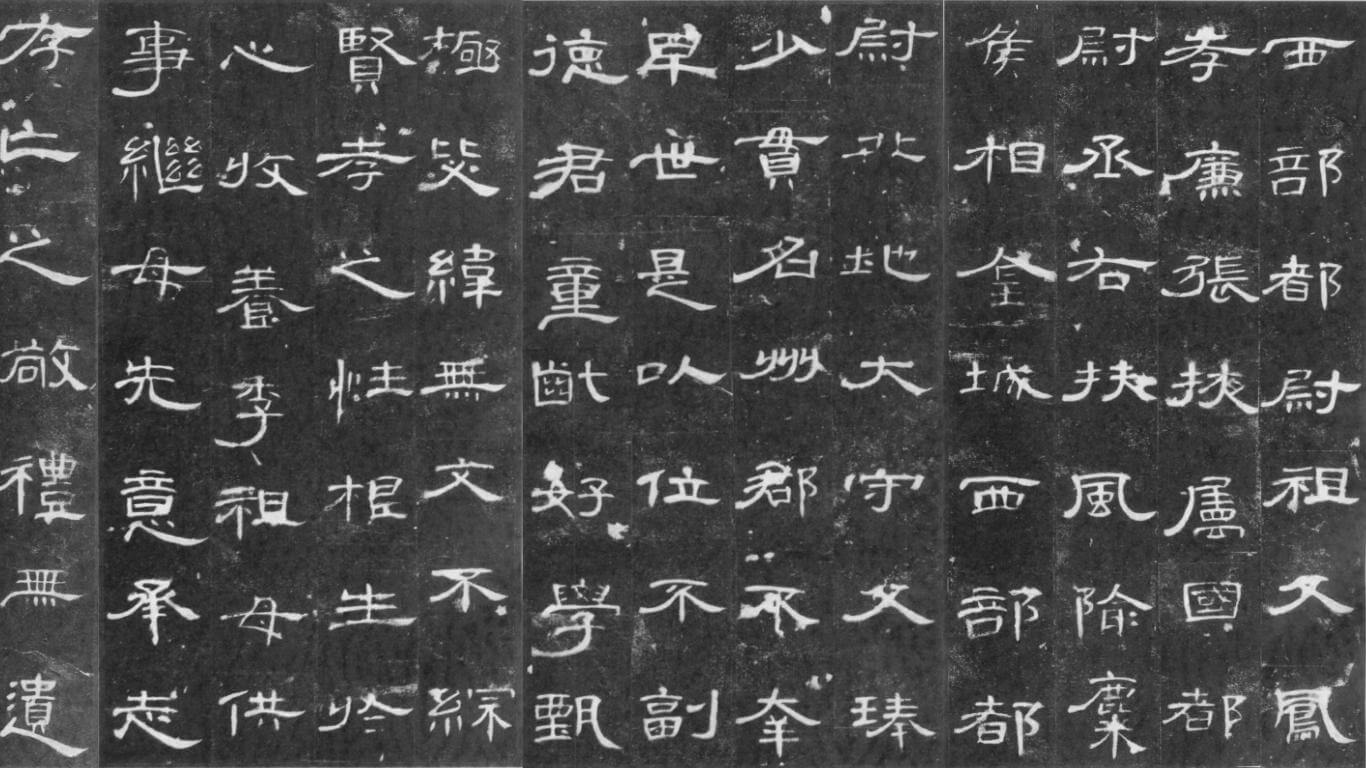 西部都尉祖父鳳
孝廉張掖屬國都
尉丞右扶風隃麋
侯相金城西部都
尉北地大守父琫
少貫名州郡不幸
早世是以位不副
德君童齔好學甄
極毖緯無文不綜
賢孝之性根生於
心收養季祖母供
事繼母先意承志
存亡之敬禮無遺